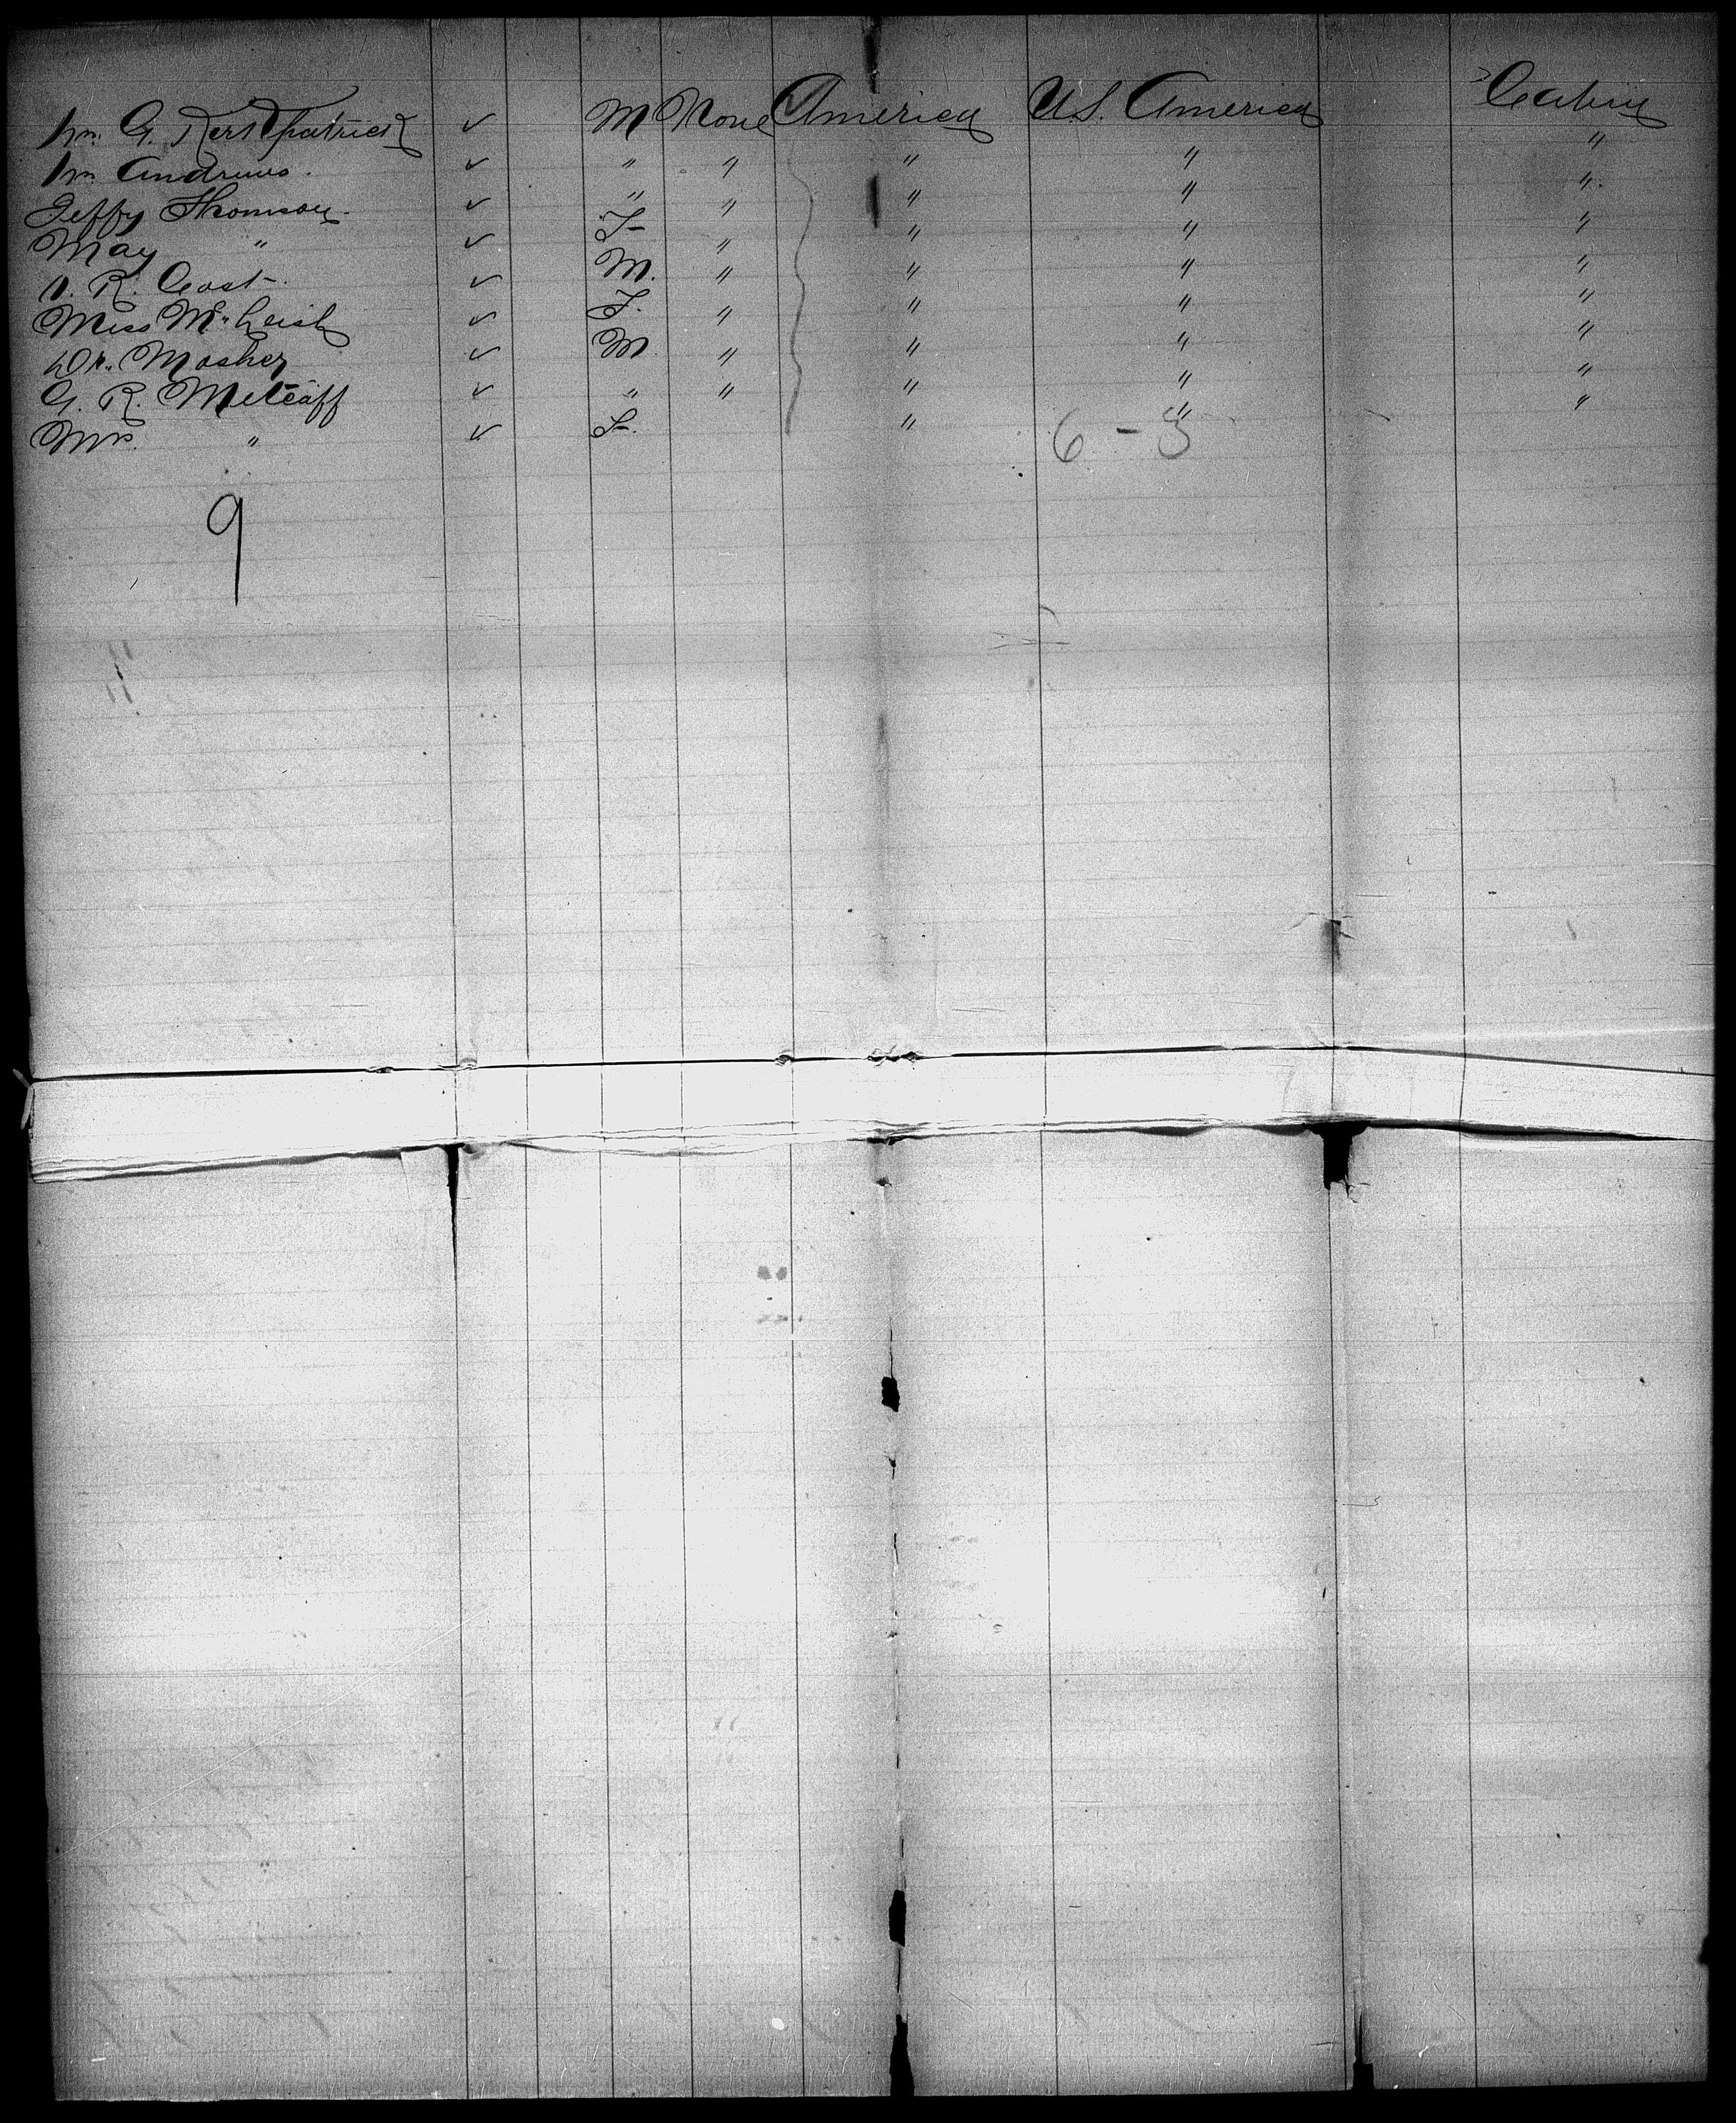 Wm. G. Kerkpatrick ✓ M None America U.S. America Cabin
Wm Andrews. ✓ " " " " "
Jeffy Thomson. ✓ " " " " "
May " ✓ F " " " "
R. Cost. ✓ M. " " " "
Miss McLeish ✓ F. " " " "
Dr. Mosher ✓ M " " " "
G. R. Metcalf ✓ " " " " "
Mrs. " ✓ F. " " "
6 - 3
9